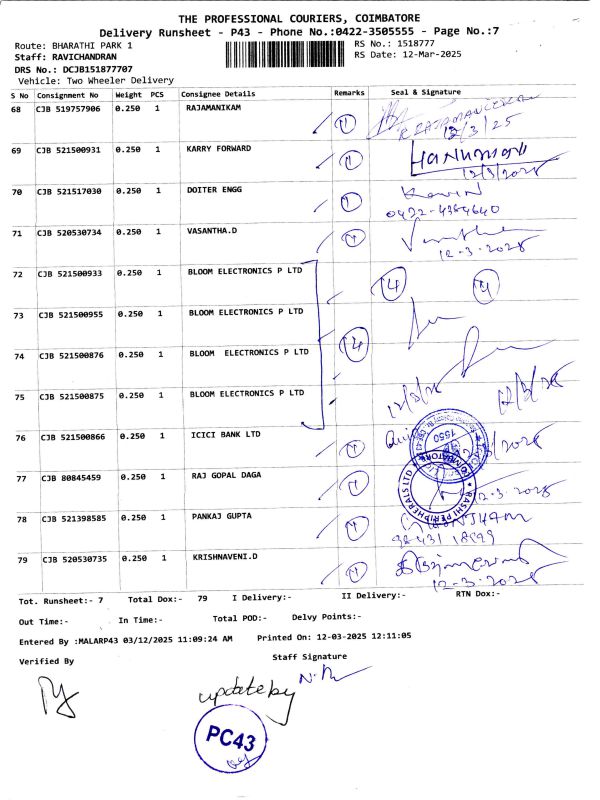 THE PROFESSIONAL COURIERS, COIMBATORE
Delivery Runsheet - P43 - Phone No.:0422-3505555 - Page No.:7
Route: BHARATHI PARK 1
RS No.: 1518777
Staff: RAVICHANDRAN
RS Date: 12-Mar-2025
DRS No.: DCJB151877707
Vehicle: Two Wheeler Delivery
S No Consignment No Weight PCS Consignee Details Remarks Seal & Signature
68 CJB 519757906 0.250 1 RAJAMANIKAM
12/3/25
69 CJB 521500931 0.250 1 KARRY FORWARD
12/3/2025
70 CJB 521517030 0.250 1 DOITER ENGG
71 CJB 520530734 0.250 1 VASANTHA.D
12-3-2025
72 CJB 521500933 0.250 1 BLOOM ELECTRONICS P LTD
73 CJB 521500955 0.250 1 BLOOM ELECTRONICS P LTD
74 CJB 521500876 0.250 1 BLOOM ELECTRONICS P LTD
75 CJB 521500875 0.250 1 BLOOM ELECTRONICS P LTD
12/3/25 12/3/25
76 CJB 521500866 0.250 1 ICICI BANK LTD
1550
77 CJB 80845459 0.250 1 RAJ GOPAL DAGA
RASHI PERIPHERALS LTD
12-3-2025
78 CJB 521398585 0.250 1 PANKAJ GUPTA
79 CJB 520530735 0.250 1 KRISHNAVENI.D
12-3-2025
Tot. Runsheet:- 7 Total Dox:- 79 I Delivery:- II Delivery:- RTN Dox:-
Out Time:- In Time:- Total POD:- Delvy Points:-
Entered By :MALARP43 03/12/2025 11:09:24 AM Printed On: 12-03-2025 12:11:05
Verified By
Staff Signature
update by
PC43